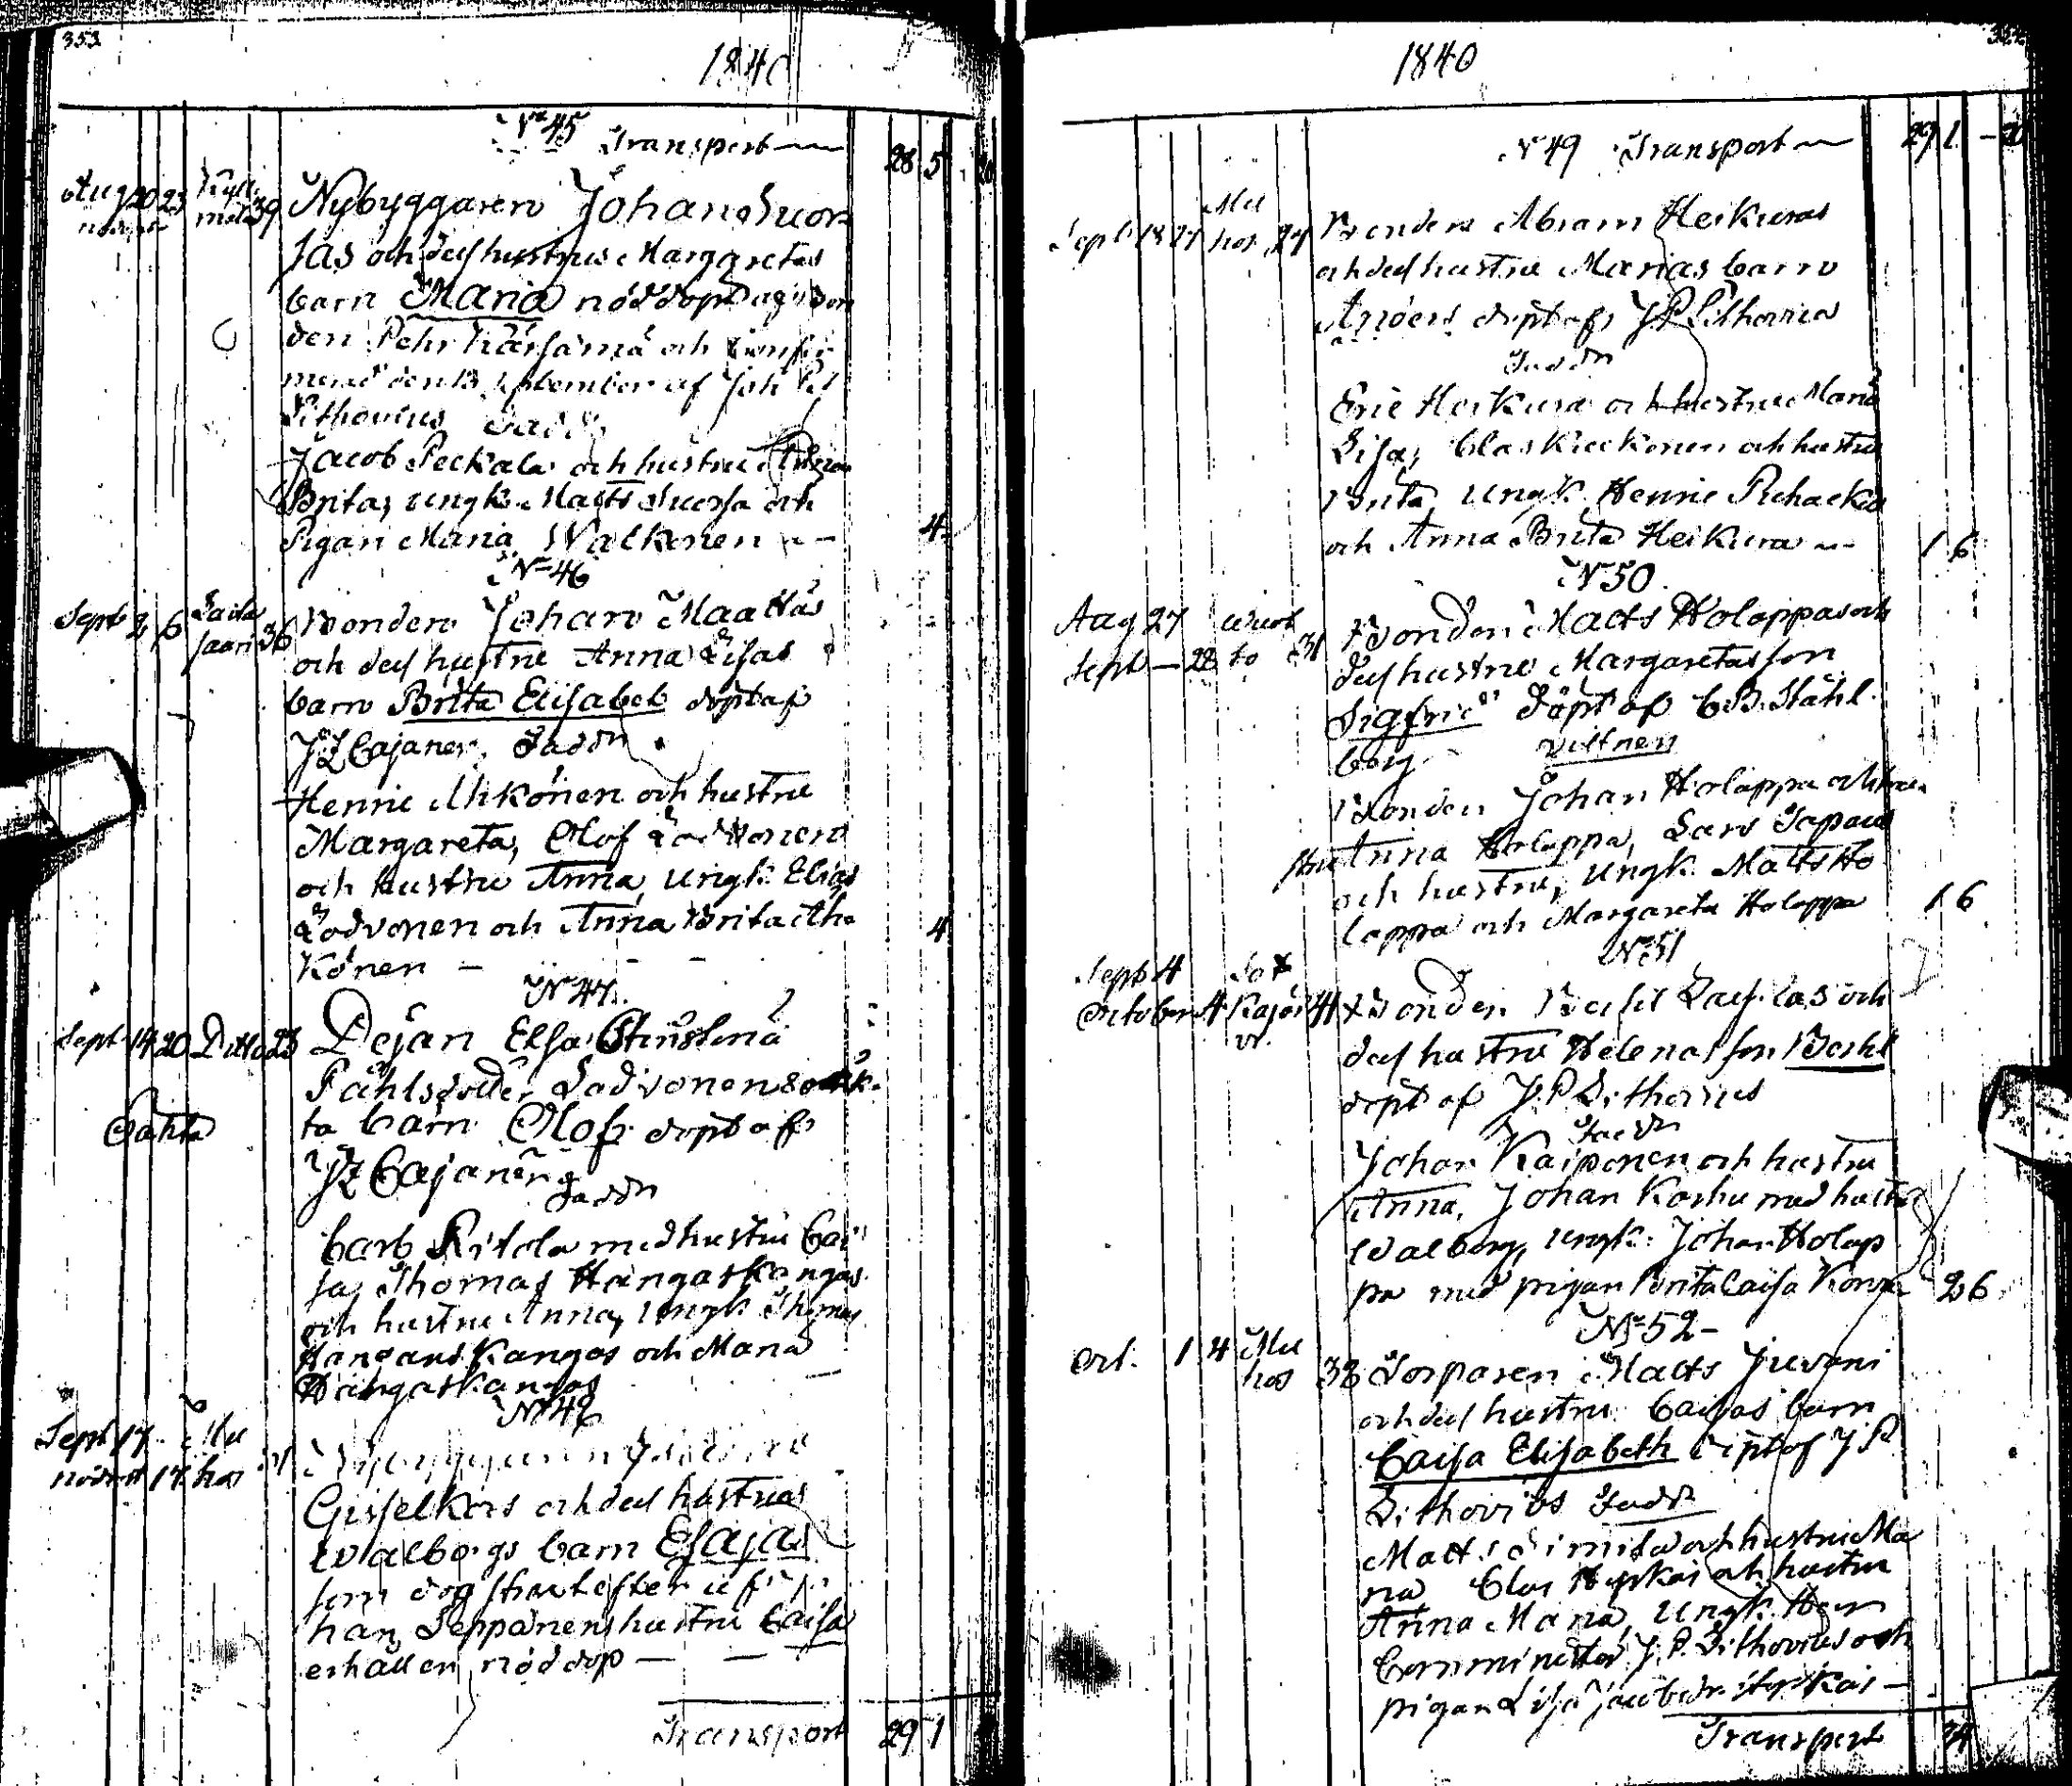 353
1840
N° 45 Transport — 28 5 20
Aug 20 23 Kyl-
nöddopt mälä 39 Nybyggaren Johan Suor-
sas och dess hustrus Margaretas
barn Maria nöddöpt af
den Pehr Kärsämä och confir-
merad den 13 September af Joh P
Lithovius Fadd.
Jacob Peckala och hustru
Brita, ungk. Matts Suorsa och
Pigan Maria Walkonen — 4
N° 46
Sept 2 6 Laita
saari 36 Bonden Johan Maattas
och dess hustru Anna Lisas
barn Brita Elisabet döpt af
J Z Cajaner, Faddr
Henric Ahkonen och hustru
Margareta, Olof Lodvonen
och hustru Anna, ungk. Elias
Lodvonen och Anna Brita Ah- 4
konen —
N° 47
Sept 14 20 Ditto 23 Dejan Elsa Christina
Påhlsdotter Lodvonens oäk-
Oäkta
ta barn Olof döpt af
J Z Cajaner
Faddr
Carl Ritola med hustru Cai-
sa, Thomas Hangaskangas
och hustru Anna, Ungk Thomas
Hangaskangas och Maria
Hangaskangas
N° 48
Sept 17 Mu
nöddopt 17 hos Nybyggaren
Gisselkors och dess hustrus
Walborgs barn Esajas
som dog strax efter af
han Seppänens hustru Caisa
erhållen nöddop —
Transport 29 1
1840
N 49 Transport — 29 1 - 20
Sept 18 27 Mu
hos 24 Bonden Abram Heikuras
och dess hustru Marias barn
Anders döpt af J P Lithovius
Faddr
Eric Heikura och hustru Maria
Lisa, Clas Kuckonen och hustru
Brita, Ungk. Henric Puhacka
och Anna Brita Heikura — 1 6
N 50
Aug 27 Wuot
Sept — 28 to 31 Bonden Matts Holappas och
dess hustrus Margaretas son
Sigfrid döpt af C B Ståhl-
berg Vittnen
Bonden Johan Holappa och hu-
stru Anna Holappa, Lars Tapani
och hustru, Ungk. Matts Ho-
lappa och Margareta Holappa 1 6
N° 51
Sept 4 Sot
October 4 kajär
vi 41 Bonden Beshl Lais. las och
dess hustru Helenas son Beshl
döpt af J. P. Lithovius
Faddr
Johan Kaiponen och hustru
Anna, Johan Koshu med hustru
Walborg, ungk. Johan Holap-
pa med pigan Brita Caisa Korva 2 6
N° 52
Oct. 1 4 Mu
hos 38 Torparen Matts Juvani
och dess hustru Caisas barn
Caisa Elisabeth döpt af J P
Lithovius Faddr
Matts Similä och hustru Ma-
ria Clas Hyrkäs och hustru
Anna Maria, Ungk. Herr
Comminister J. P. Lithovius och
pigan Lisa Jacobsdr. Hyrkäs —
Transport 34